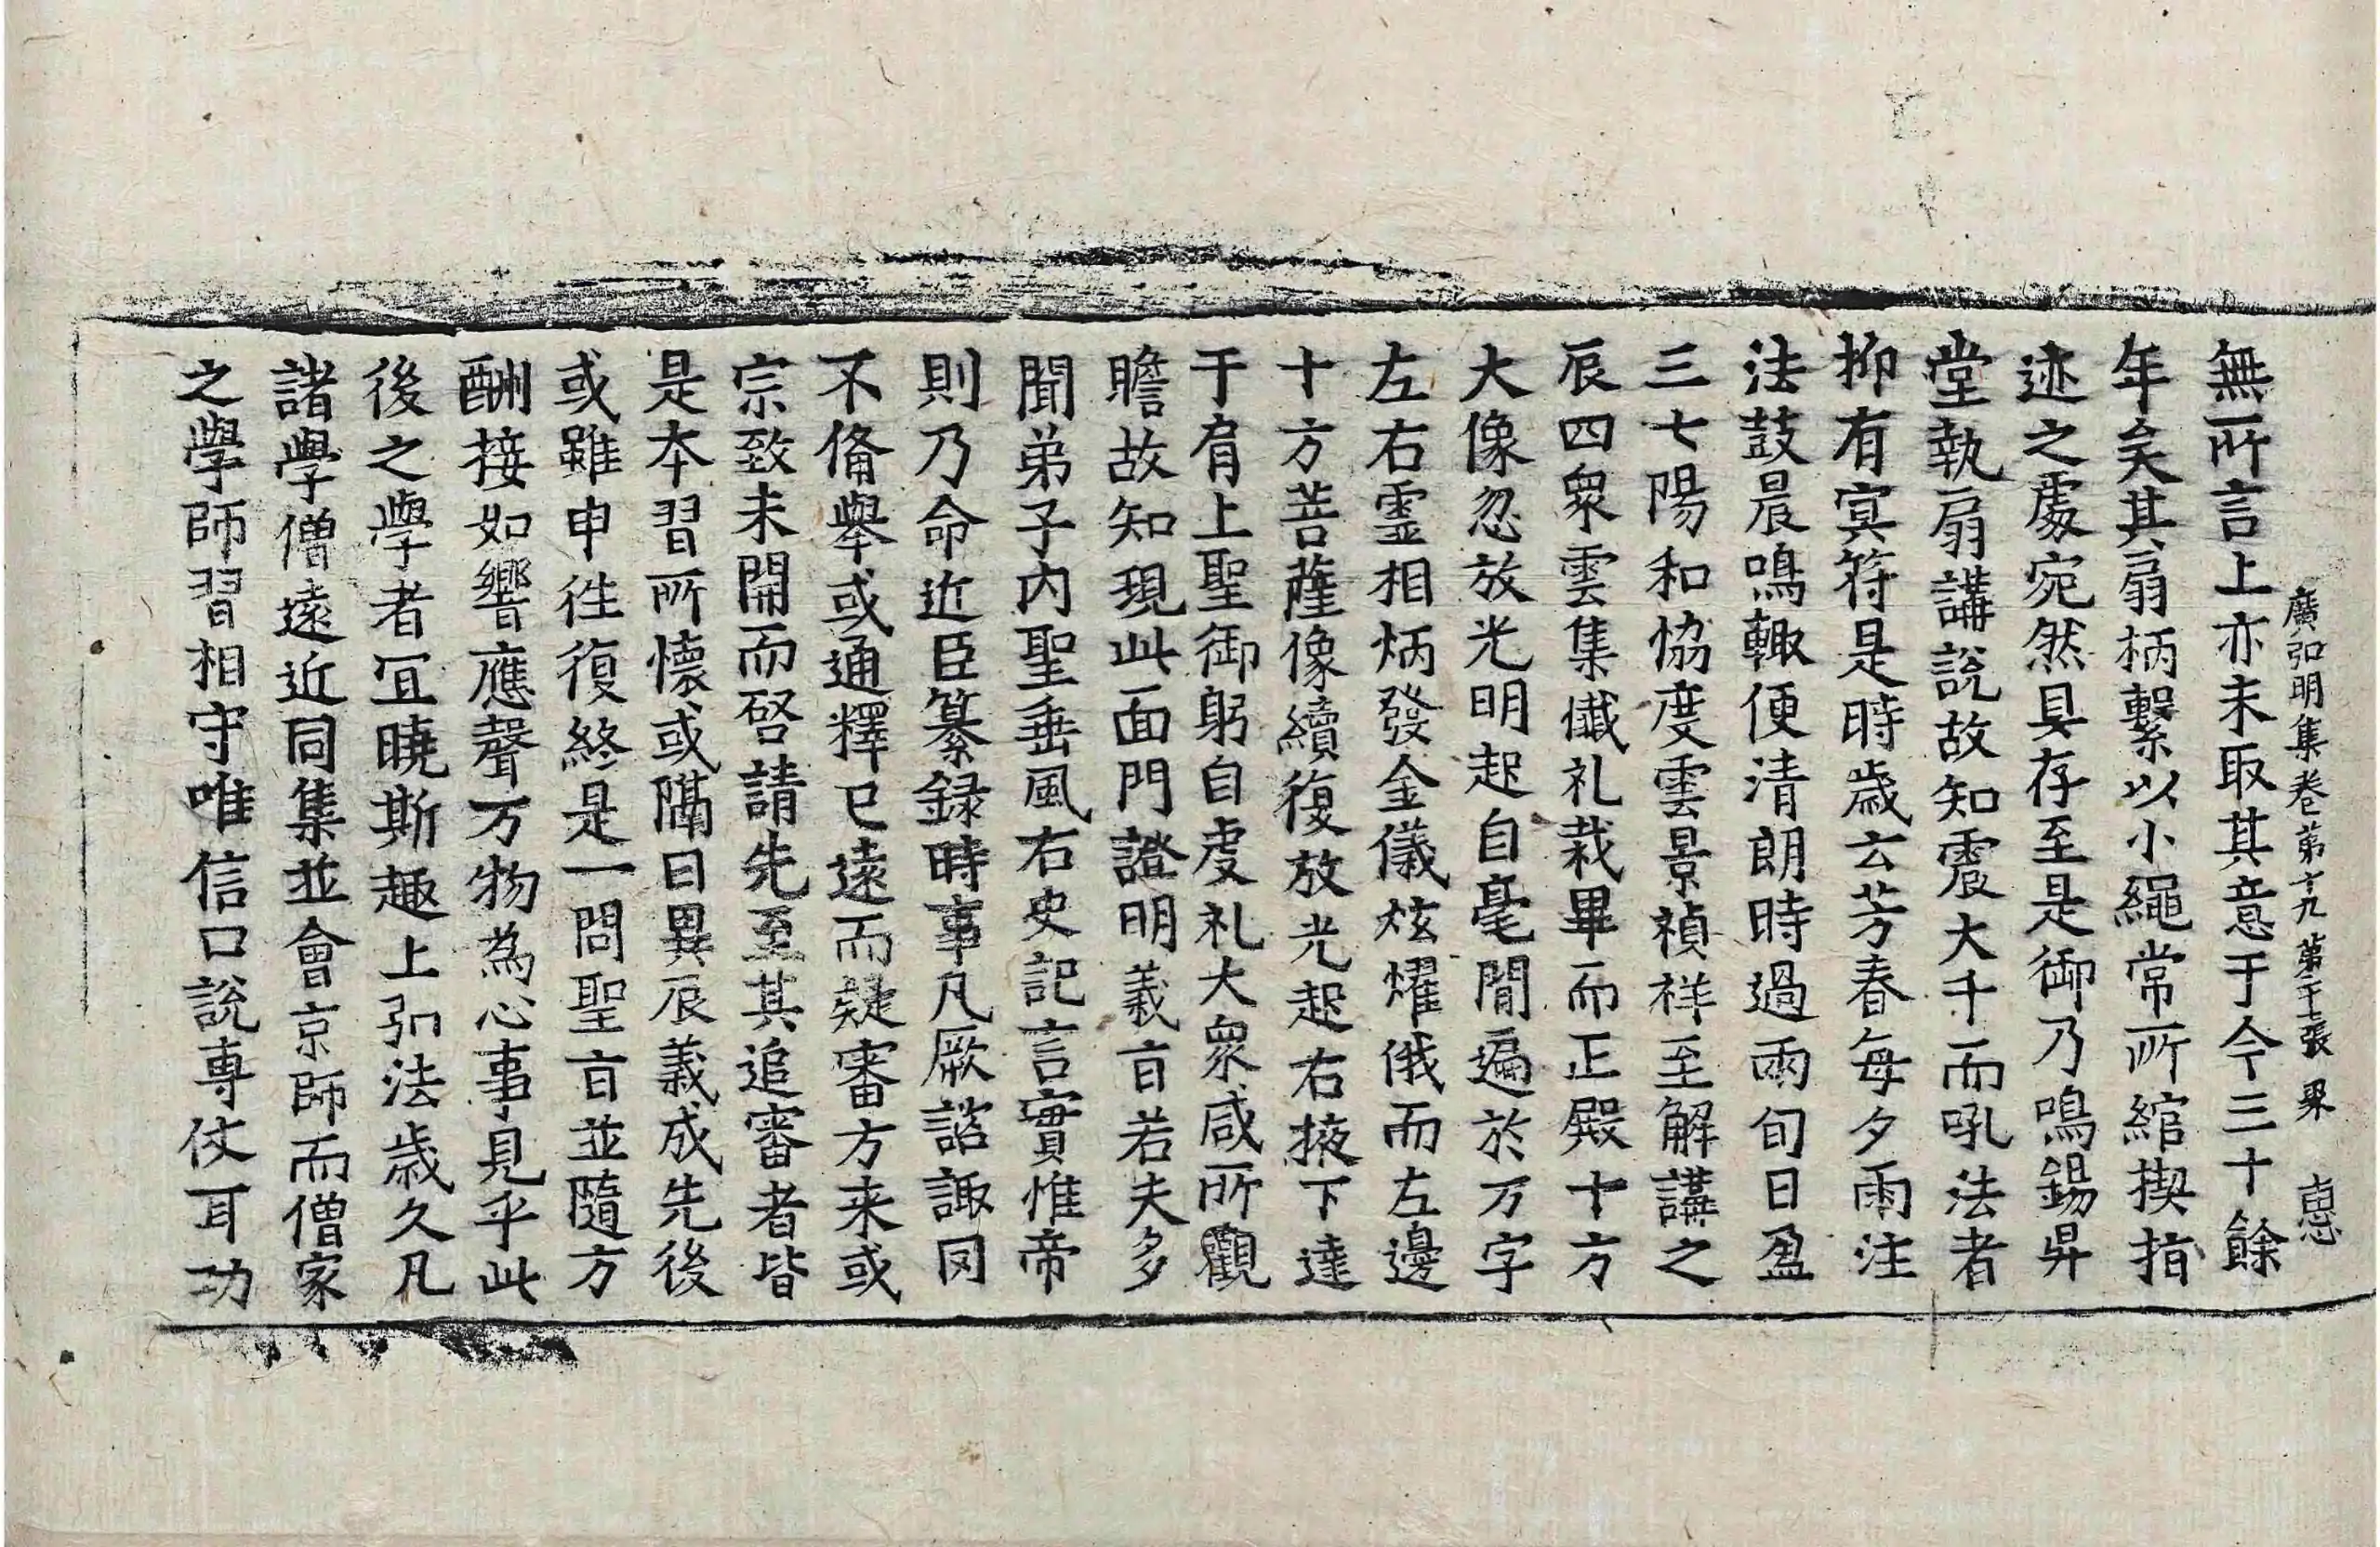 廣弘明集卷第十九 第二十七張 畢 惪
無所言上亦未取其意于今三十餘
年矣其扇柄繫以小繩常所綰揳指
迹之處宛然具存至是御乃鳴錫昇
堂執扇講說故知震大千而吼法者
抑有冥符是時歲玄芳春每夕雨注
法鼓晨鳴輙便清朗時過兩旬日盈
三七陽和恊度雲景禎祥至解講之
辰四衆雲集懺礼裁畢而正殿十方
大像忽放光明起自毫間遍於万字
左右靈相炳發金儀炫燿俄而左邊
十方菩薩像續復放光起右掖下達
于肩上聖御躬自虔礼大衆咸所觀
瞻故知現此面門證明義旨若夫多
聞弟子内聖垂風右史記言實惟帝
則乃命近臣纂録時事凡厥諮諏罔
不俻舉或通釋已遠而疑審方来或
宗致未開而啓請先至其追審者皆
是本習所懷或隔日異辰義成先後
或雖申徃復終是一問聖旨並隨方
酬接如響應聲万物為心事見乎此
後之學者冝曉斯趣上弘法歲久凡
諸學僧遠近同集並會京師而僧家
之學師習相守唯信口說專仗耳功